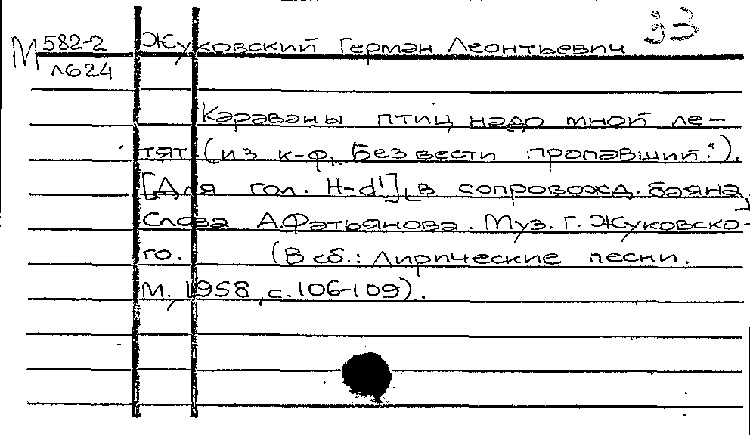 М 582-2 Жуковский Герман Леонтьевич 33
л624
Караваны птиц надо мной ле-
тят (из к-ф. "Без вести пропавший").
[Для гол. H-d¹] в сопровожд. баяна.
Слова А.Фатьянова. Муз. Г. Жуковско-
го. (В сб.: Лирические песни.
М., 1958, с.106-109).